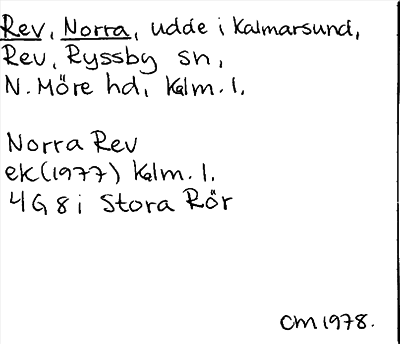 Rev, Norra, udde i Kalmarsund,
Rev, Ryssby sn,
N. Möre hd, Kalm. l.
Norra Rev
ek (1977) Kalm. l.
4G 8i Stora Rör
CM 1978.